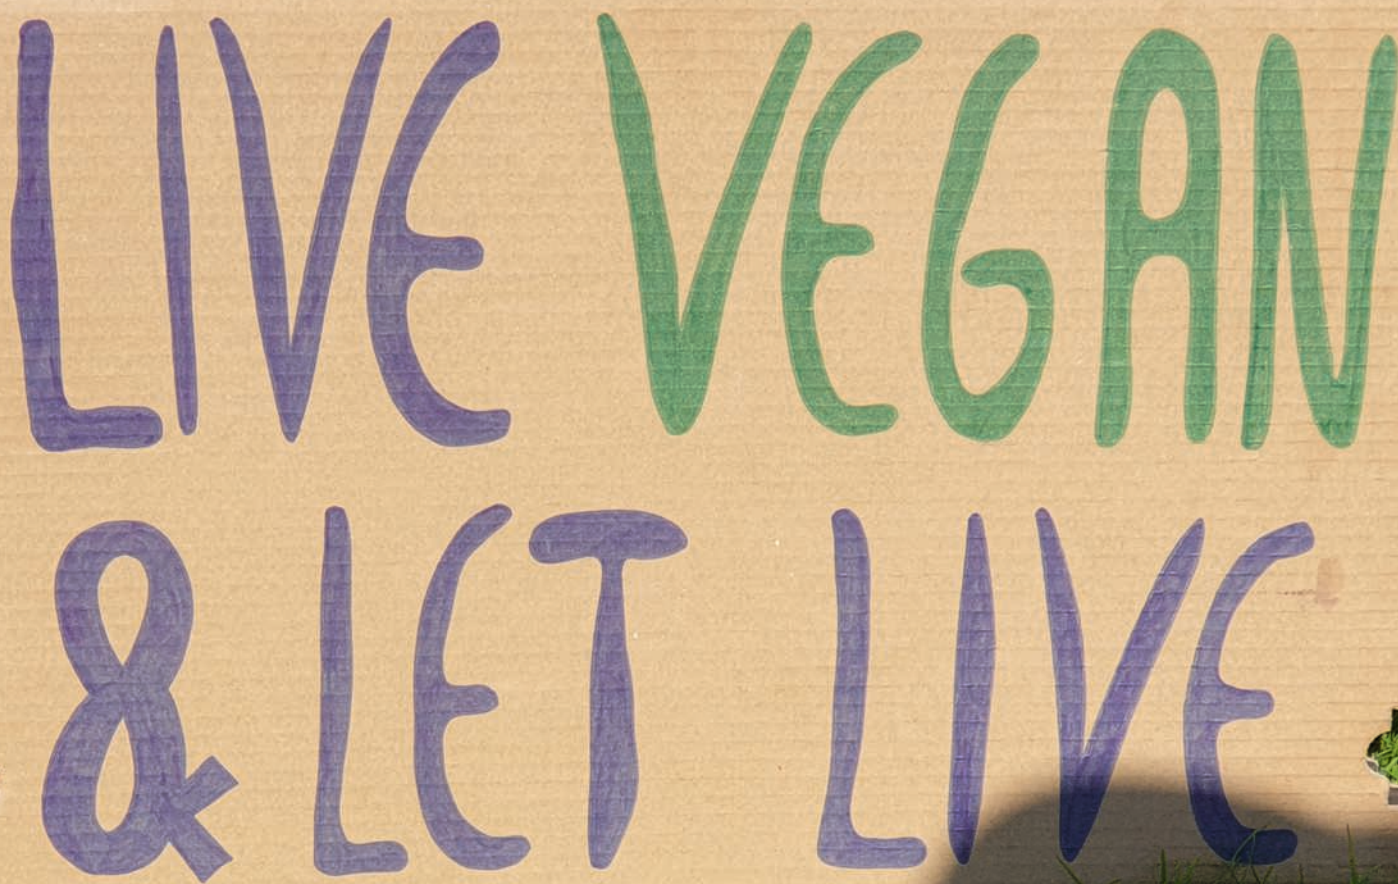 LIVE VEGAN
& LET LIVE